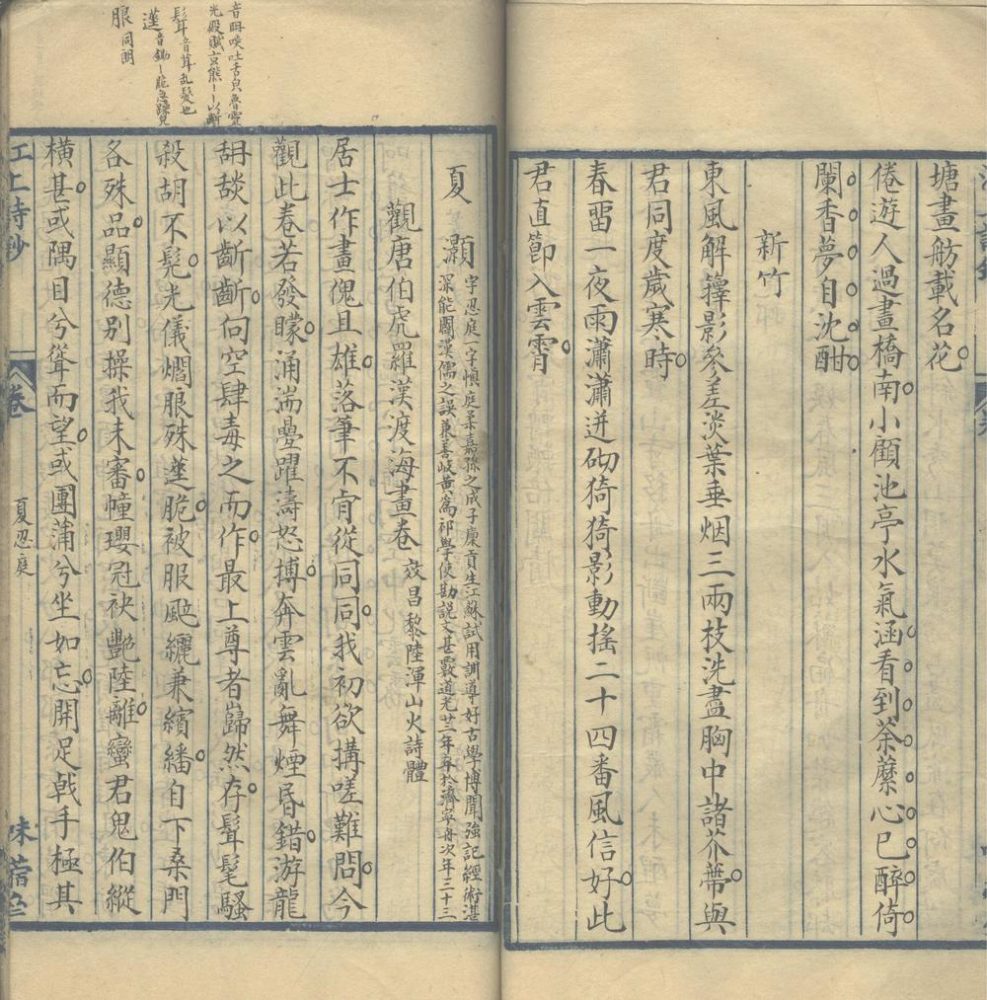 塘畫舫載名花
倦遊人過畫橋南小顧池亭水氣涵看到荼蘼心已醉倚
闌香夢自沈酣
新竹
東風解籜影參差淡葉垂烟三兩枝洗盡胸中諸芥蒂與
君同度歲寒時
春畱一夜雨瀟瀟迸砌猗猗影動搖二十四番風信好此
君直節入雲霄
音䀲啖吐舌皃魯靈
光殿賦玄熊——以斷
髶音茸亂髮也
蓫音
服同
夏灝
字忍庭一字愼庭柔嘉孫之成子廩貢生江蘇試用訓導好古學博聞強記經術湛
深能闢漢儒之誤兼善岐黃爲祁學使勘說文甚覈道光廿一年卒於濟寧舟次年三十三
觀唐伯虎羅漢渡海畫卷 效昌黎陸渾山火詩體
居士作畫傀且雄落筆不肯從同同我初欲搆嗟難問今
觀此卷若發矇涌湍疊躍濤怒搏奔雲亂舞煙昏錯游龍
舑舕以齗齗向空肆毒之而作最上尊者巋然存髶髦騷
殺胡不髡光儀爓服殊蓫脆被服颰纚兼繽繙自下桑門
各殊品顯德别操我未審幢瓔冠袂艷陸離蠻君鬼伯縱
橫甚或隅目兮聳而望或團蒲兮坐如忘開足戟手極其
江上詩鈔
卷
夏忍庭